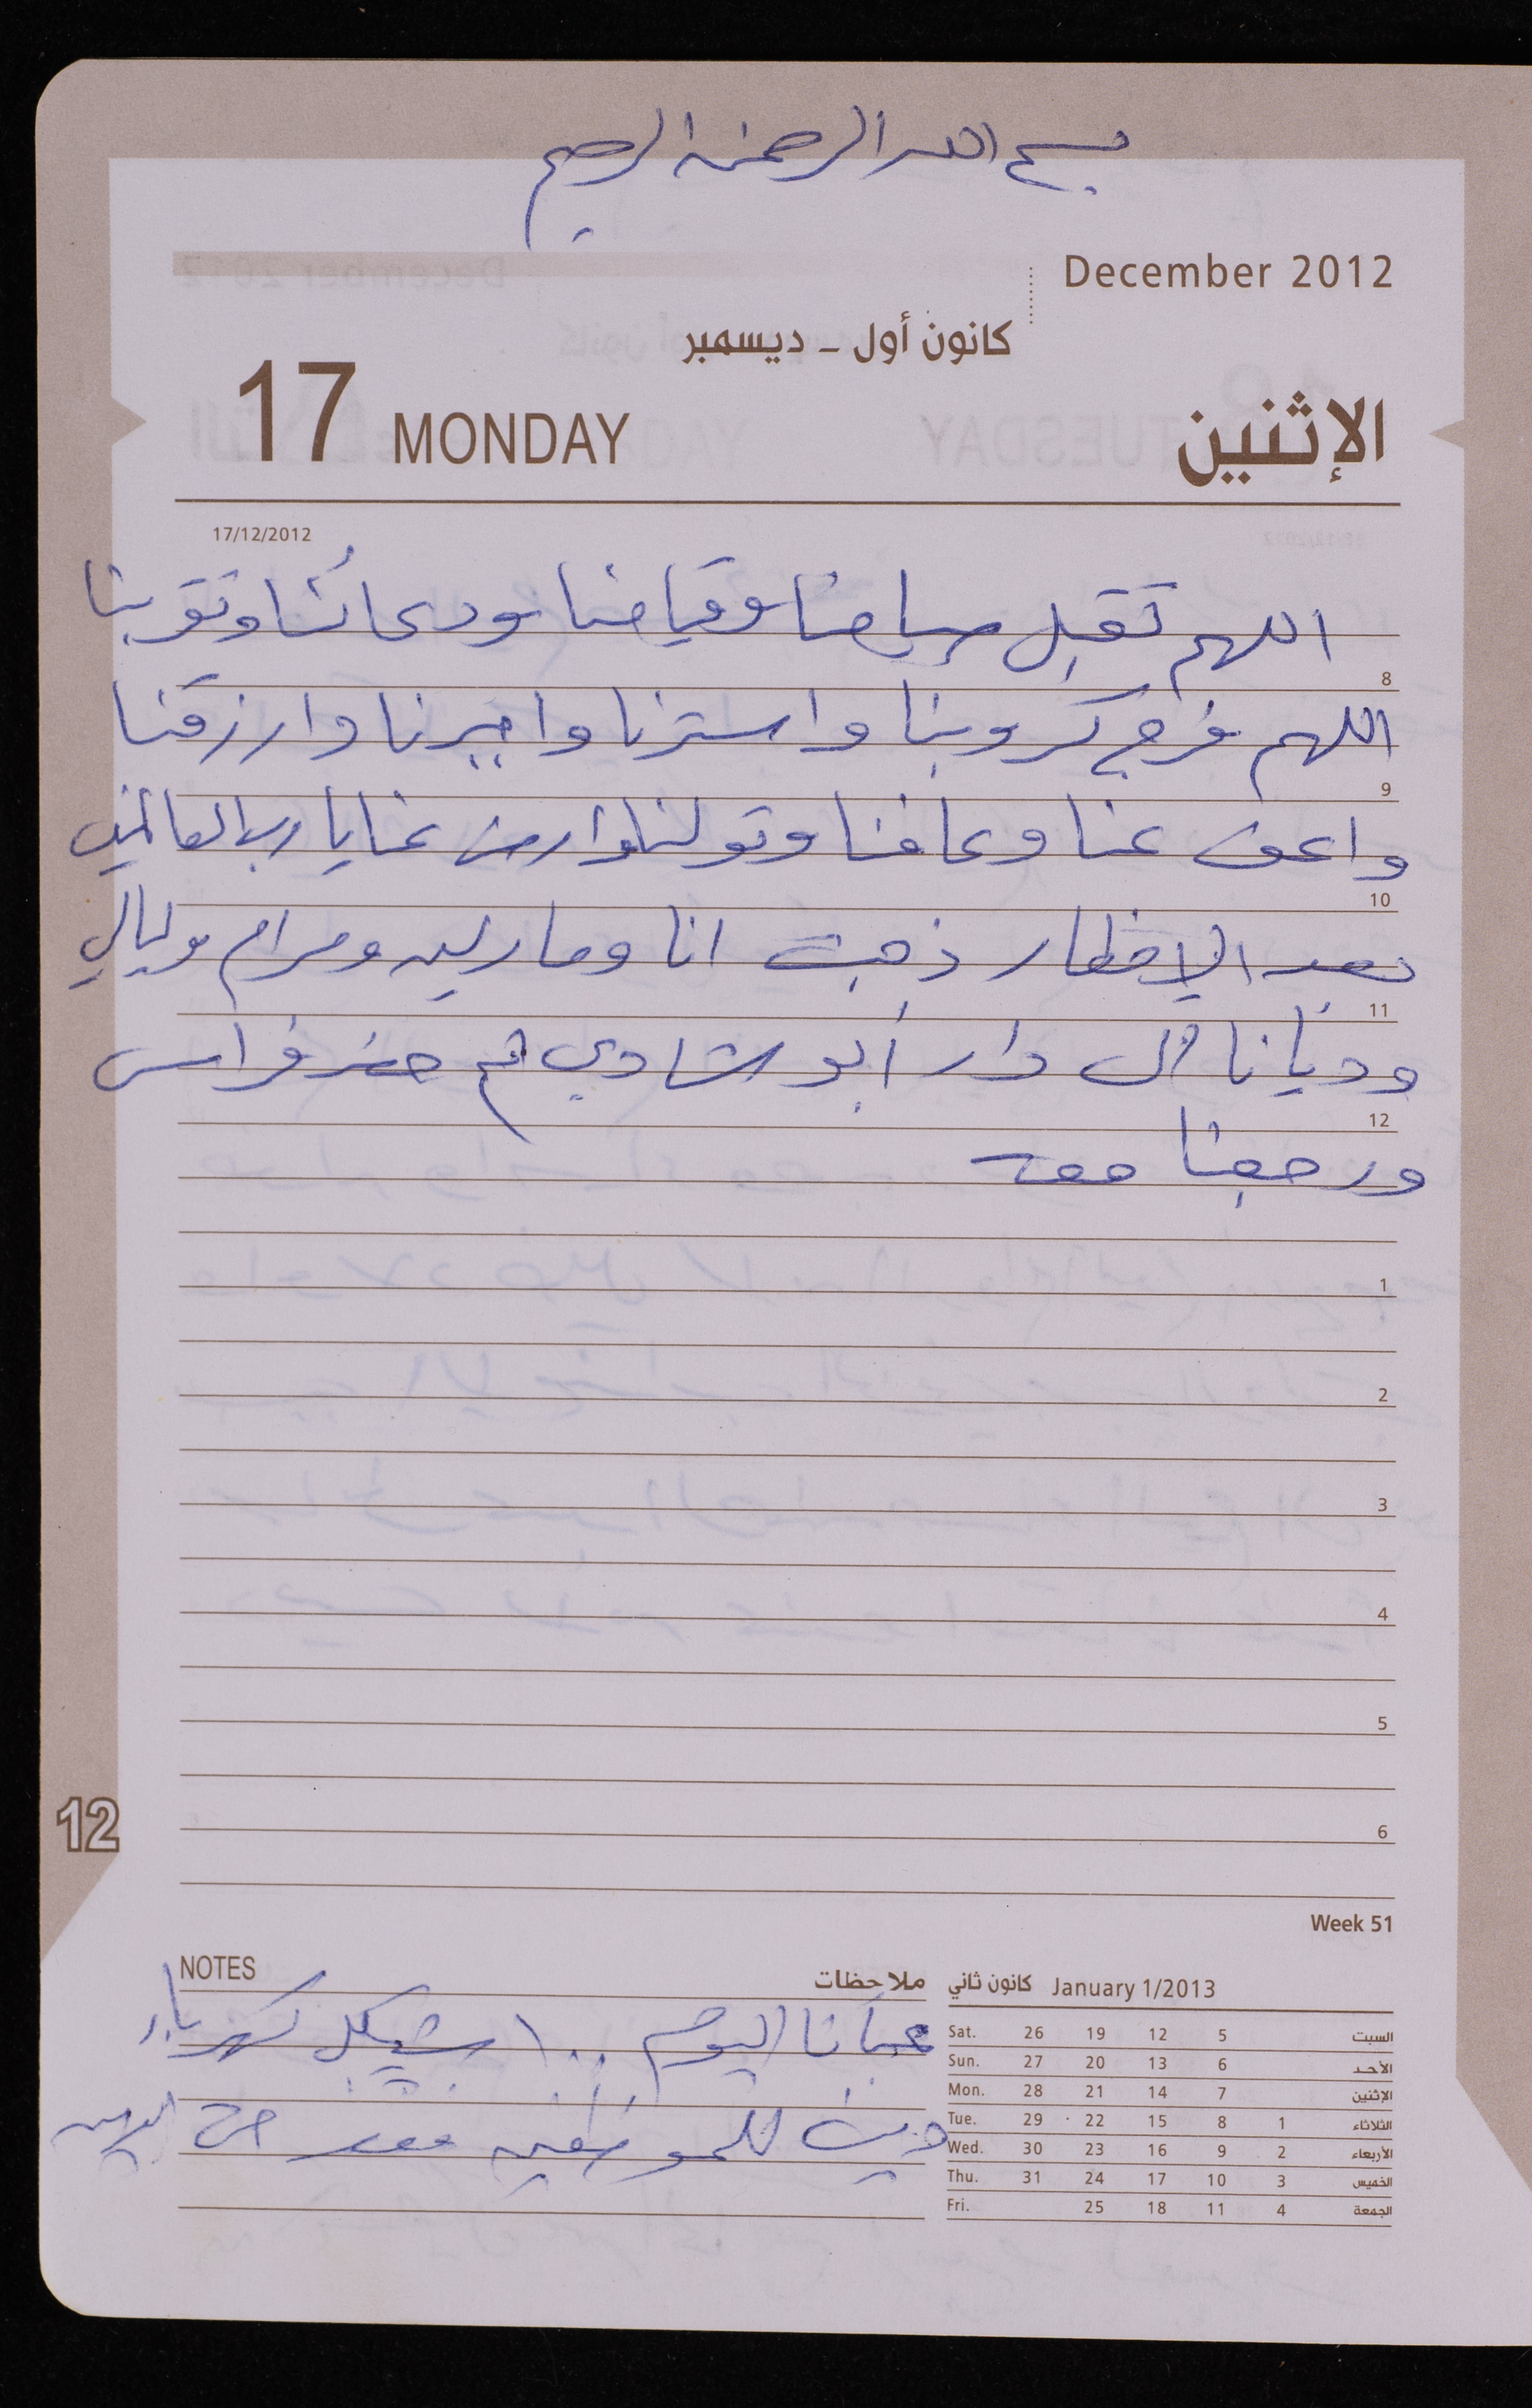 بسم الله الرحمن الرحيم
December 2012
كانون أول – ديسمبر
17 MONDAY الإثنين
17/12/2012
اللهم تقبل صيامنا وقيامنا ودعائنا وتوبتنا
8
اللهم فرج كروبنا واسترنا واجبرنا وارزقنا
9
واعف عنا وعافنا وتولنا وارض عنا يا رب العالمين
10
بعد الإفطار ذهبت انا ومارلين ومرام وليالي
11
وديانا الى دار أبو شادي ثم حضر فراس
12
ورجعنا معه
1
2
3
4
5
6
12
Week 51
NOTES ملاحظات
عبأنا اليوم ١٠٠ شيكل كهرباء
دين للموظفين معه حق
كانون ثاني January 1/2013
Sat. 26 19 12 5 السبت
Sun. 27 20 13 6 الأحد
Mon. 28 21 14 7 الإثنين
Tue. 29 22 15 8 1 الثلاثاء
Wed. 30 23 16 9 2 الأربعاء
Thu. 31 24 17 10 3 الخميس
Fri. 25 18 11 4 الجمعة